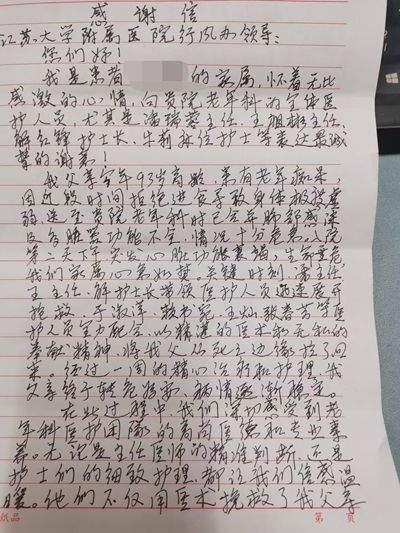 感谢信
江苏大学附属医院行风办领导:
您们好!
我是患者 的家属,怀着无比
感激的心情,向贵院老年科的全体医
护人员,尤其是潘瑞蓉主任、王旭彬主任、
解红锋护士长、朱莉 护士等表达最诚
挚的谢意!
我父亲今年93岁高龄,患有老年痴呆,
因近段时间拒绝进食导致身体极度重
弱送至贵院老年科时已合并肺部感染
及多脏器功能不全,情况十分危急。入院
第二天下午突发心脏功能衰竭,生命垂危
我们家属心急如焚。关键时刻,潘主任
王主任、解护士长带领医护人员迅速展开
抢救,于淑洋、 、王 、张春芳等医
护人员全力配合,以精湛的医术和无私的
奉献精神,将我父从死亡边缘拉了回
来。经过一周的精心治疗和护理,我
父亲终于转危为安、病情逐渐稳定。
在此过程中,我们深切感受到老
年科医护团队的高尚医德和专业素
养。无论是主任医师的精准判断,还是
护士们的细致护理,都让我们倍感温
暖。他们不仅用医术挽救了我父亲
纸品
第 页